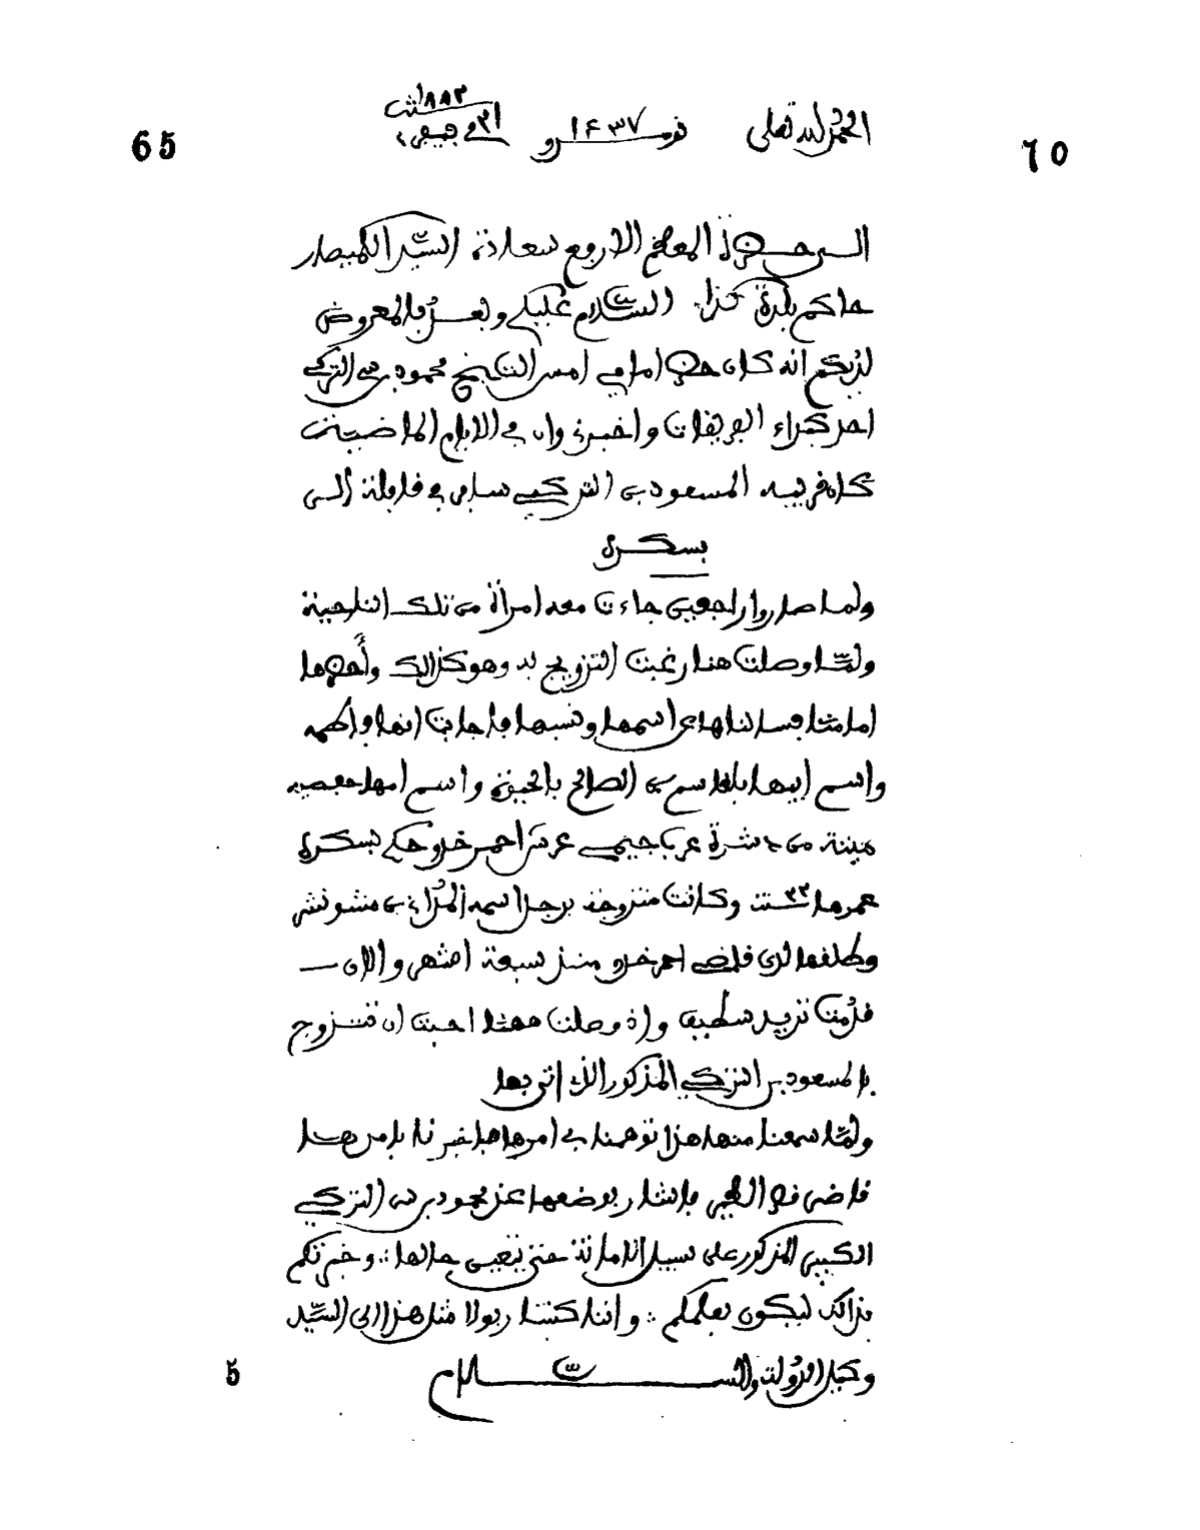 65
الحمد لله تعالى نومرو ١٦٣٧ في ٣١ جيفي ١٨٨٣ سنة
70
الى حضرة المعظم الارفع سعادة السيد الكميصار
حاكم بلدة كذا السلام عليكم وبعد فالمعروض
لديكم انه كان حضر امامي امس الشيخ محمود بن التركي
احد كبراء الفريقات واخبرني وان في الايام الماضيت
كان قريبه المسعود بن التركي سافر في قافلة الى
بسكرة
ولما صاروا راجعين جاءت معه امرأة من تلك الناحية
ولما وصلت هنا رغبت التزويج به وهو كذالك وأحضرها
امامنا فسالناها عن اسمها ونسبها فاجابت انها فاطمه
واسم ابيها بلقاسم بن الصالح واسم امها حفصيه
ميتة من عرش احمر خدو حكم بسكرة
عمرها ٢٣ سنت وكانت متزوجة برجل اسمه
وطلقها لدى قاضي احمر خدو منذ سبعة اشهر والان
قدمت تريد سطيف واذ وصلت هنا احبت ان تتزوج
بالمسعود بن التركي المذكور الذي اتى بها
ولما سمعنا منها هذا توهمنا في امرها فاخبرنا بامرها
قاضي فاشار بوضعها عند محمود بن التركي
الكبير المذكور على سبيل الامانة حتى يتعين حالها وخبرتكم
بذالك ليكون بعلمكم واننا كتبنا ربولا مثل هذا الى السيد
وكيل الدولت والسلام
5